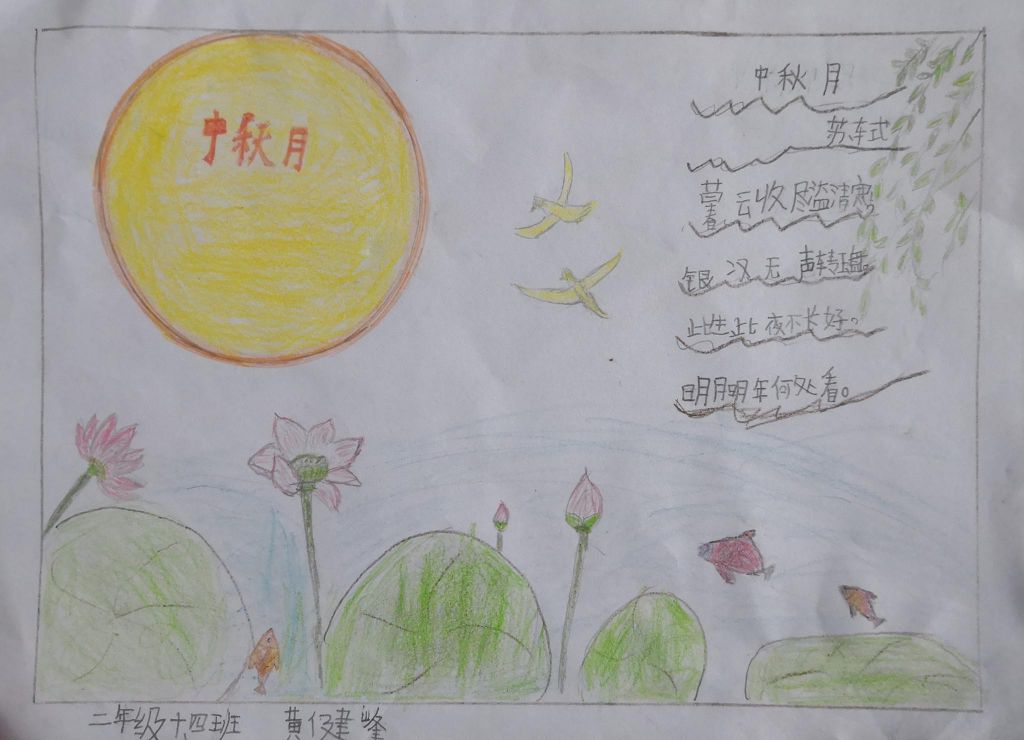 中秋月
中秋月
苏轼
暮云收尽溢清寒。
银汉无声转玉盘。
此生此夜不长好。
明月明年何处看。
二年级十四班 黄建峰